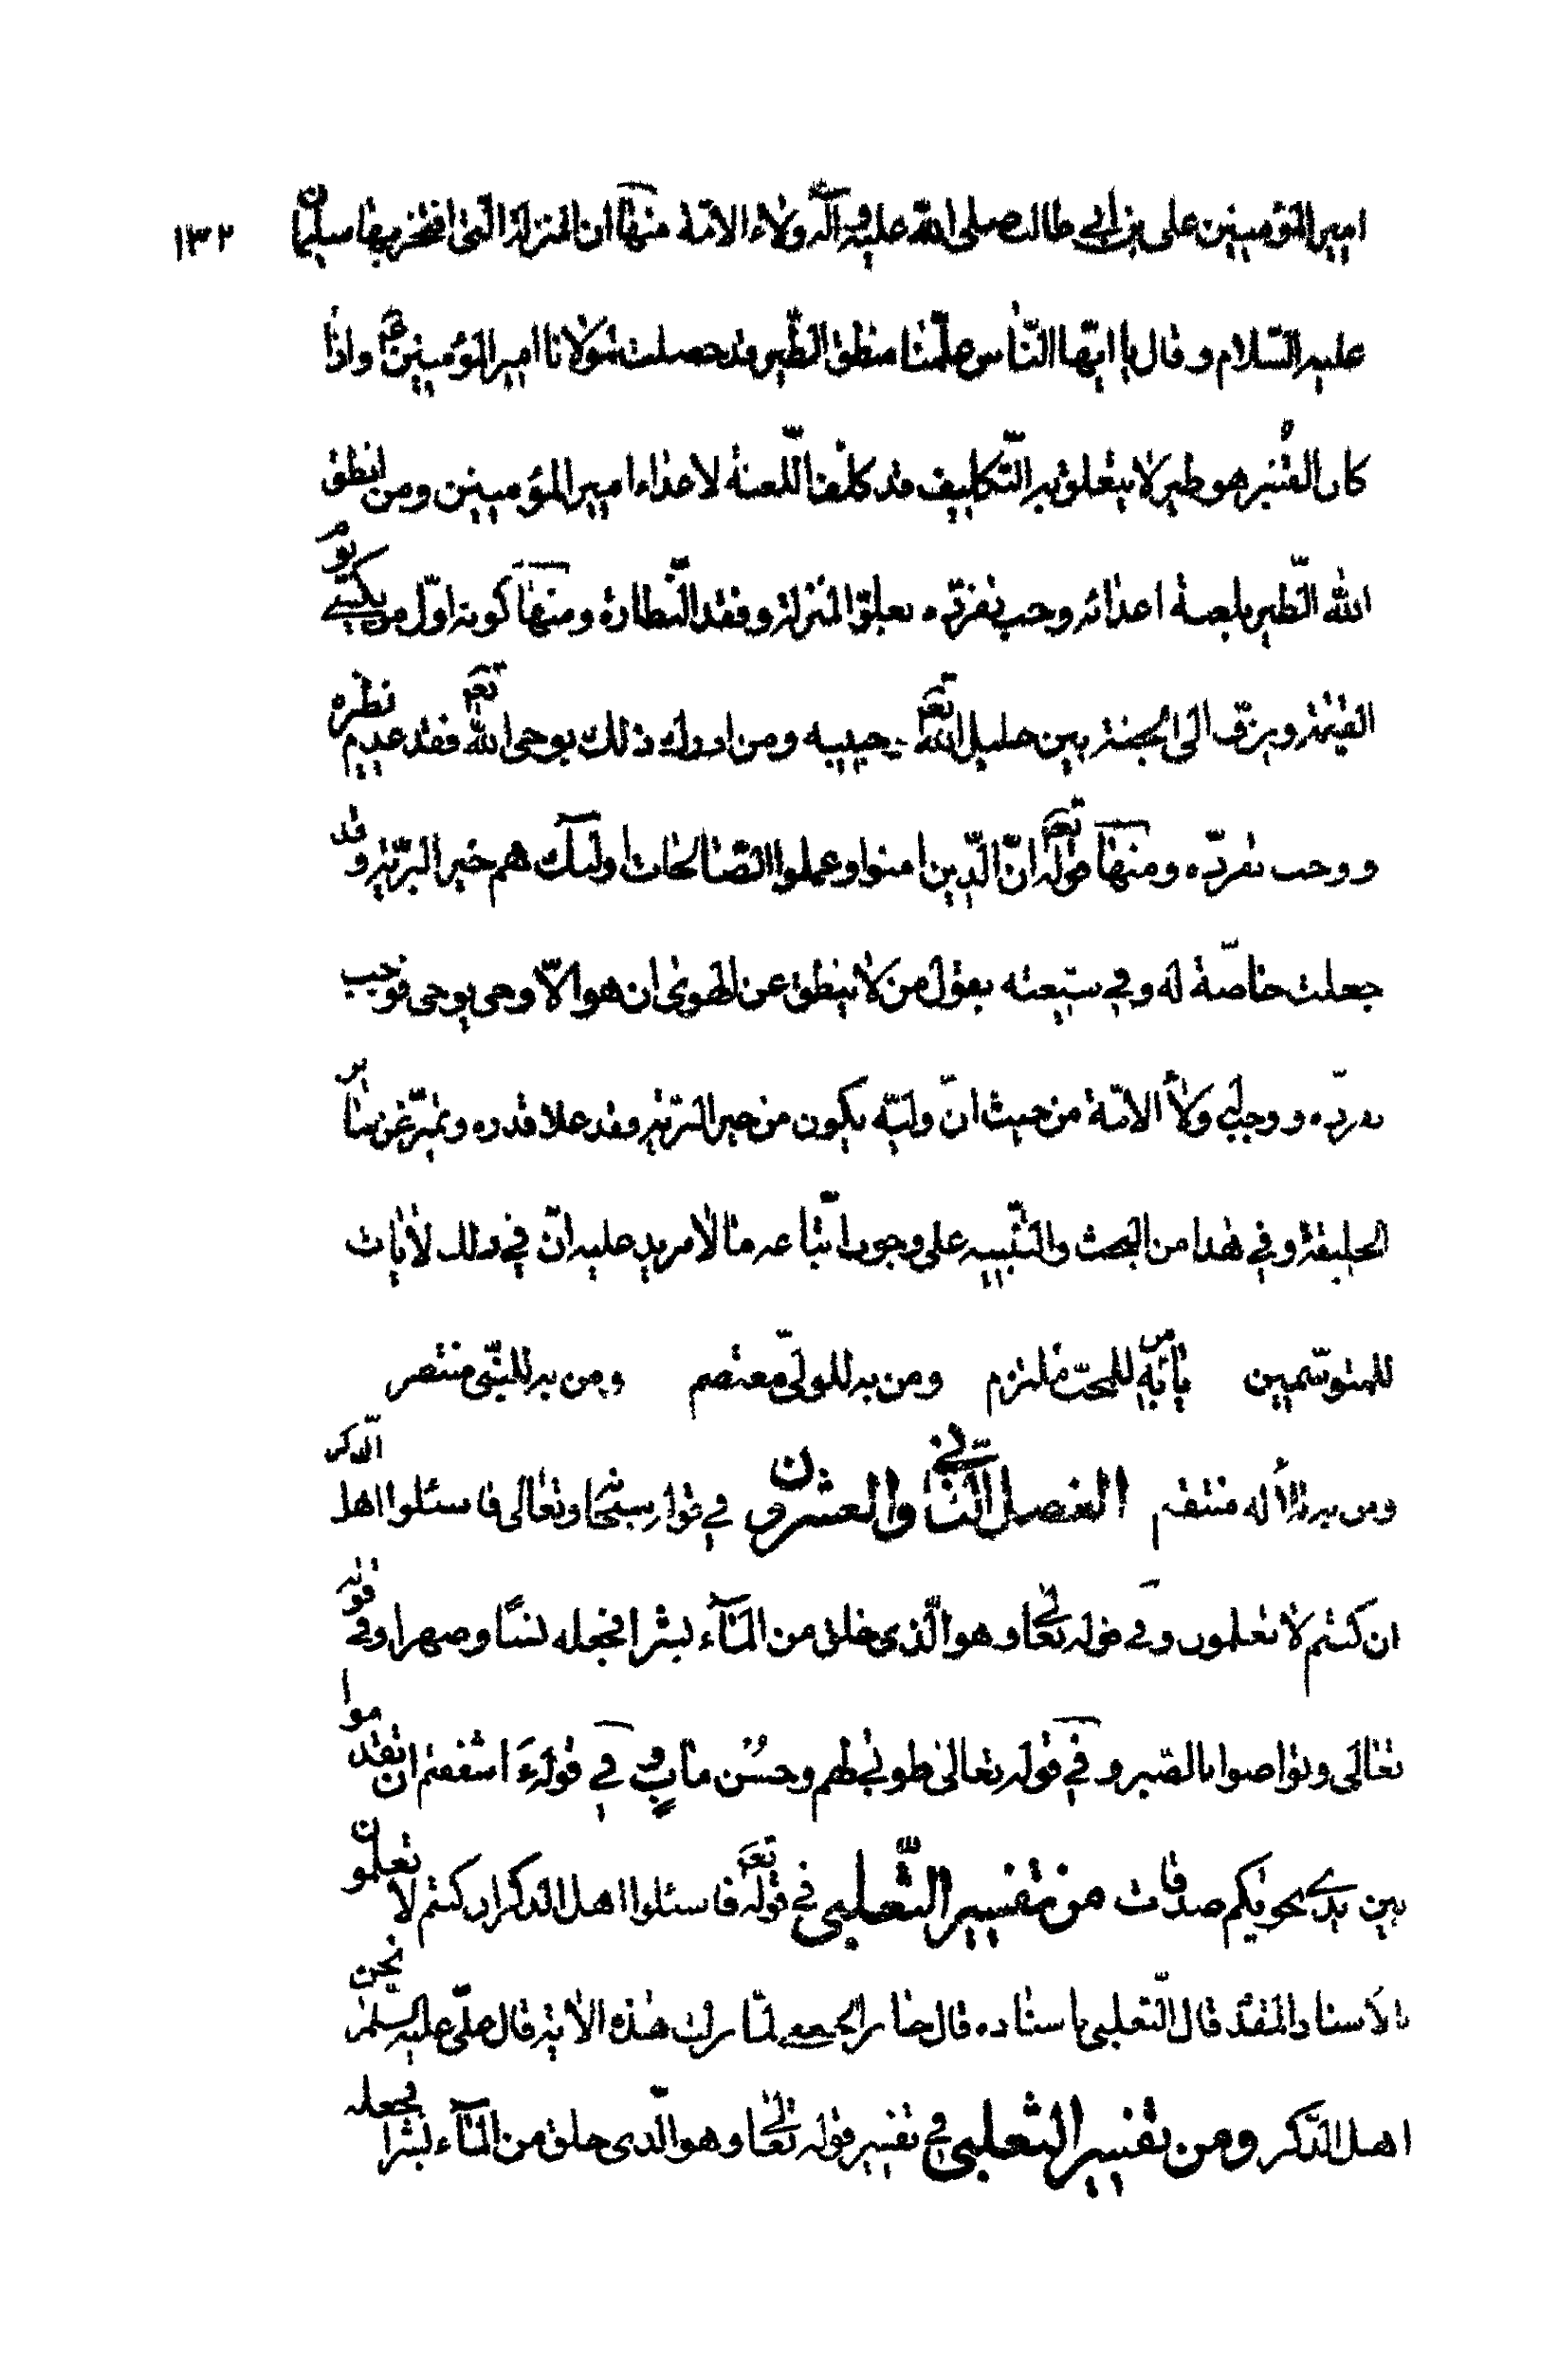 امير المؤمنين على بن ابى طالب صلى الله عليه وآله ولاء الامّة منها ان المنزلة الّتى افتخر بها سليمان ١٣٢
عليه السّلام وقال يا ايّها النّاس علّمنا منطق الطّير قد حصلت لمولانا امير المؤمنين ع واذا
كان القنبر هو طير لا يتعلق به التّكليف قد كلّفنا اللّعنة لاعداء امير المؤمنين ومن انطق
الله الطّير بلعنة اعدائه وجب تفرّده بعلوّ المنزلة وفقد النّظارة ومنها كونه اوّل من يكسى يوم
القيمة ويزفّ الى الجنة بين خليل الله تعـ وحبيبه ومن ادرك ذلك بوحى الله تعـ فقد عديم نظره
ووجب تفرّده ومنها قوله تعـ انّ الّذين امنوا وعملوا الصّالحات اولئك هم خير البريّة وقد
جعلت خاصّة له وفي شيعته بقول من لا ينطق عن الهوى ان هو الّا وحى يوحى فوجب
تفرّده ووجب ولاء الامّة من حيث انّ وليّه يكون من خير البريّة وقد علا قدره وتميّز عن سائر
الخليقة وفي هذا من البحث والتنبيه على وجوب اتّباعه ما لا مزيد عليه انّ في ذلك لآيات
للمتوسّمين فانّه للمحقّ ملتزم ومن به للولىّ معتصم ومن به للنبّى منتصر
ومن به للاله منتقم الفصل الثّانى والعشرون في قوله سبحانه وتعالى فاسئلوا اهل الذّكر
ان كنتم لا تعلمون وفي قوله تعالى وهو الّذى خلق من المآء بشرا فجعله نسبًا وصهرا وفي قوله
تعالى وتواصوا بالصّبر وفي قوله تعالى طوبى لهم وحُسْن مآبٍ وفي قوله ءَ اشفقتم ان تقدموا
بين يدى نجويكم صدقات من تفسير الثّعلبى في قوله تعـ فاسئلوا اهل الذكر ان كنتم لا تعلمون
بالاسناد المقدّم قال الثّعلبى باسناده قال جابر الجعفى لمّا نزلت هذه الآية قال علىّ عليه السلم نحن
اهل الذّكر ومن تفسير الثعلبى في تفسير قوله تعالى وهو الّذى خلق من المآء بشرا فجعله